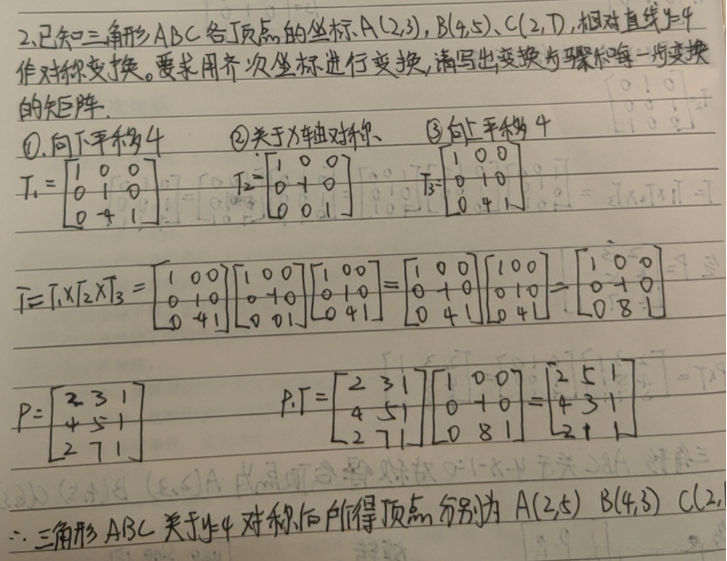 2.已知三角形ABC各顶点的坐标A(2,3),B(4,5)、C(2,7),相对直线y=4
作对称变换。要求用齐次坐标进行变换,请写出变换步骤和每一步变换
的矩阵.
①.向下平移4 ②关于X轴对称、 ③向上平移4
T₁=[1 0 0; 0 1 0; 0 -4 1] T₂=[1 0 0; 0 -1 0; 0 0 1] T₃=[1 0 0; 0 1 0; 0 4 1]
T=T₁×T₂×T₃=[1 0 0; 0 1 0; 0 -4 1][1 0 0; 0 -1 0; 0 0 1][1 0 0; 0 1 0; 0 4 1]=[1 0 0; 0 -1 0; 0 4 1][1 0 0; 0 1 0; 0 4 1]=[1 0 0; 0 -1 0; 0 8 1]
P=[2 3 1; 4 5 1; 2 7 1] P.T=[2 3 1; 4 5 1; 2 7 1][1 0 0; 0 -1 0; 0 8 1]=[2 5 1; 4 3 1; 2 1 1]
∴三角形ABC关于y=4对称后所得顶点分别为 A(2,5) B(4,3) C(2,1